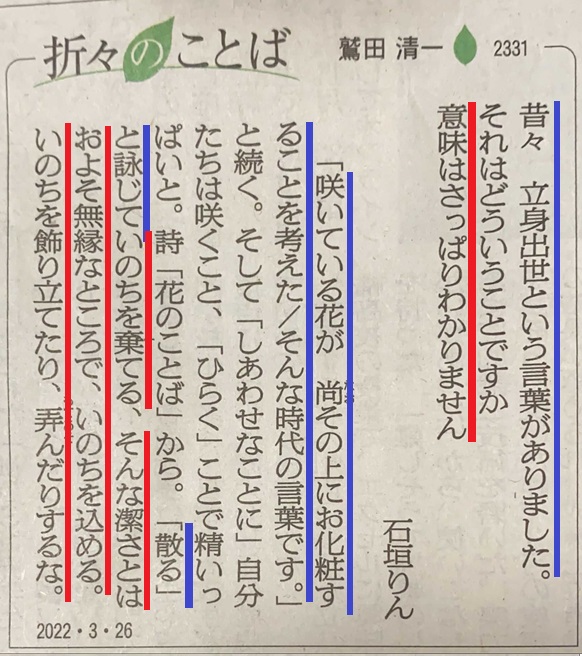 折々のことば
鷲田 清一
2331
昔々　立身出世という言葉がありました。
それはどういうことですか
意味はさっぱりわかりません
石垣りん
「咲いている花が　尚その上にお化粧す
ることを考えた／そんな時代の言葉です。」
と続く。そして「しあわせなことに」自分
たちは咲くこと、「ひらく」ことで精いっ
ぱいと。詩「花のことば」から。「散る」
と詠じていのちを棄てる、そんな潔さとは
およそ無縁なところで、いのちを込める。
いのちを飾り立てたり、弄んだりするな。
2022・3・26